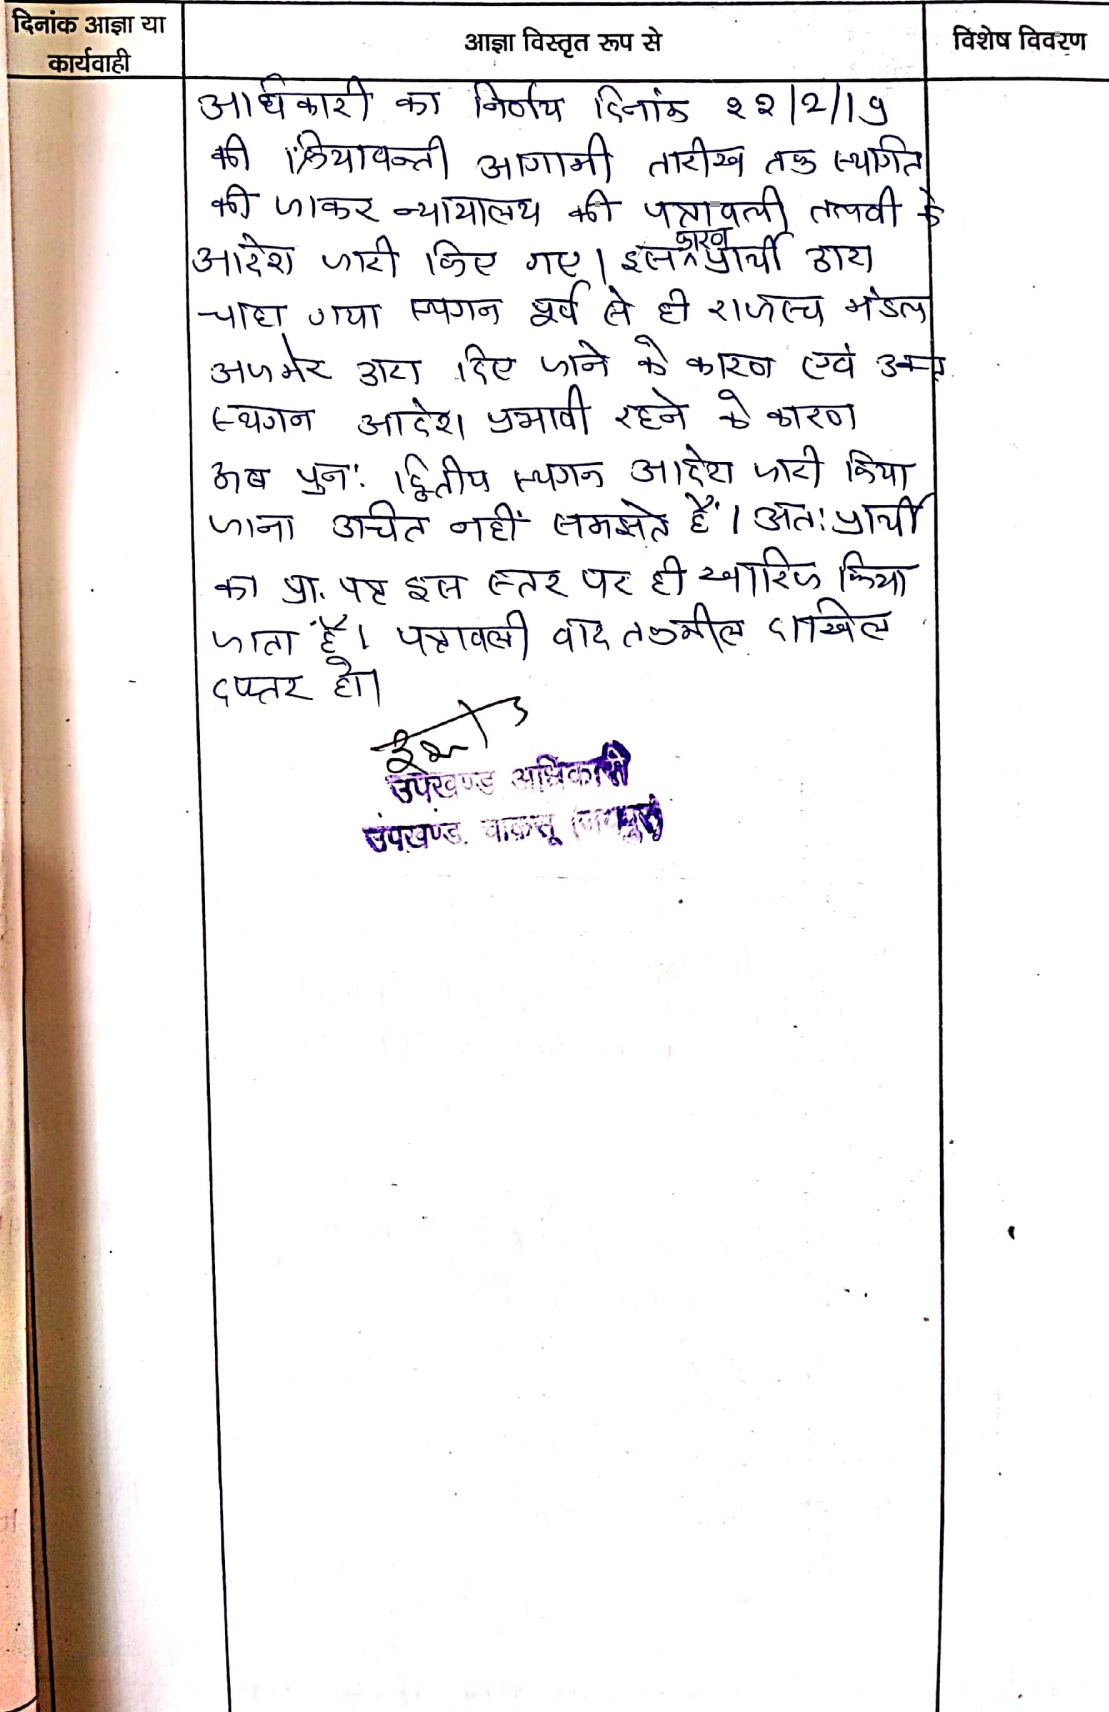 दिनांक आज्ञा या
कार्यवाही
आज्ञा विस्तृत रूप से
विशेष विवरण
अधिकारी का निर्णय दिनांक 22/2/19
की क्रियावन्ती आगामी तारीख तक स्थगित
की जाकर न्यायालय की पत्रावली तलवी के
आदेश जारी किए गए। इस कारण प्रार्थी द्वारा
चाहा गया स्थगन पूर्व से ही राजस्व मंडल
अजमेर द्वारा दिए जाने के कारण एवं उक्त
स्थगन आदेश प्रभावी रहने के कारण
अब पुनः द्वितीय स्थगन आदेश जारी किया
जाना उचित नहीं समझते हैं। अतः प्रार्थी
का प्रा. पत्र इस स्तर पर ही खारिज किया
जाता है। पत्रावली वाद तकमील दाखिल
दफ्तर हो।
उपखण्ड अधिकारी
उपखण्ड, चाकसू (जयपुर)